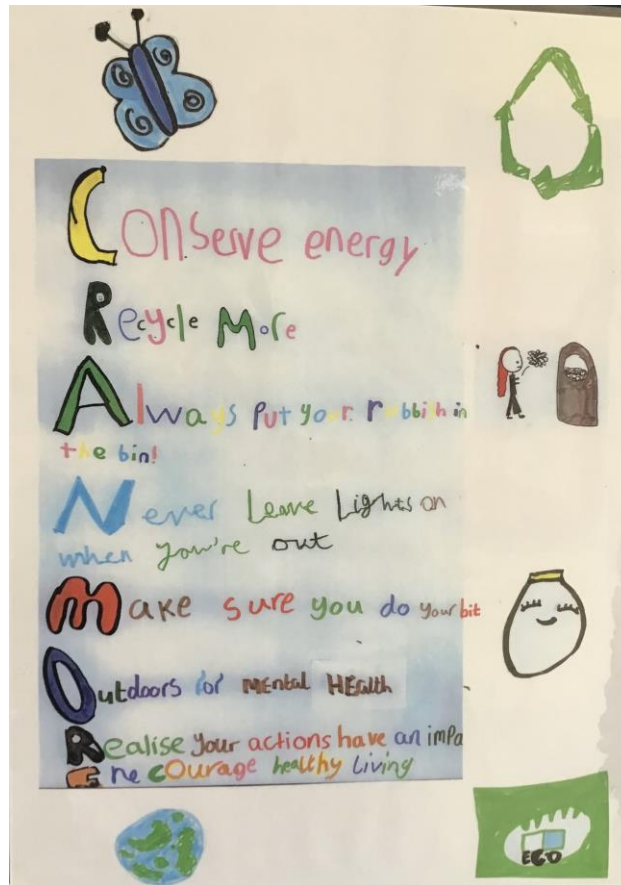 Conserve energy
Recycle More
Always Put your rubbish in
the bin!
Never Leave Lights on
when you're out
Make sure you do your bit
Outdoors for Mental HEalth
Realise Your actions have an impa
Enecourage healthy Living
ECO